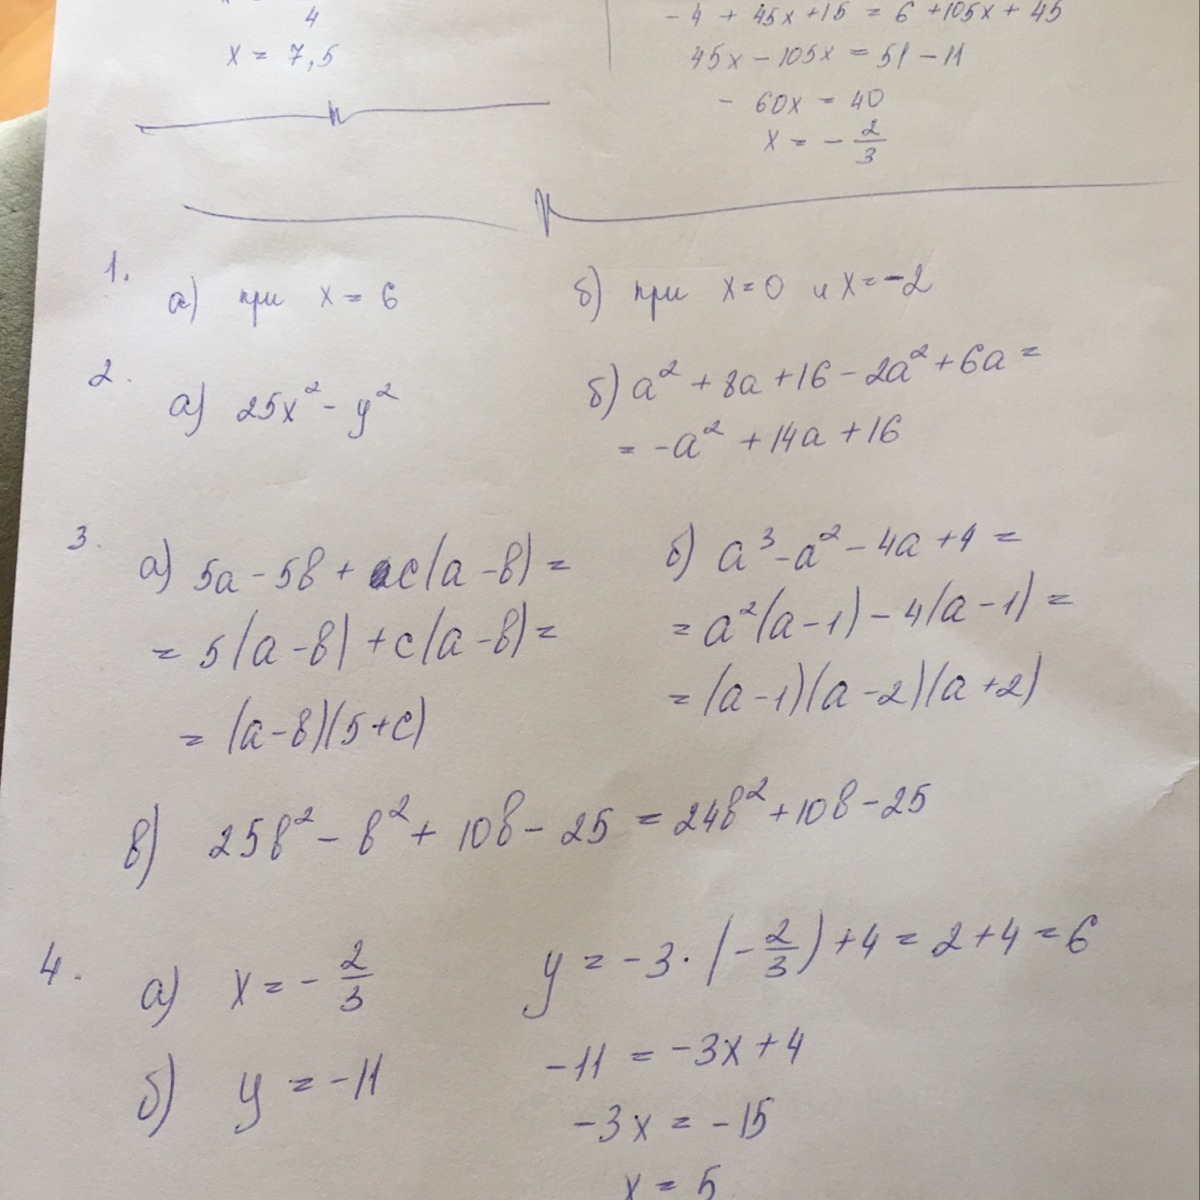 4
x = 7,5
- 4 + 45x + 15 = 6 + 105x + 45
45x - 105x = 51 - 11
- 60x = 40
x = - 2/3
1.
а) при x = 6
б) при x = 0 и x = -2
2.
а) 25x² - y²
б) a² + 8a + 16 - 2a² + 6a =
= -a² + 14a + 16
3.
а) 5a - 5b + c(a - b) =
= 5(a - b) + c(a - b) =
= (a - b)(5 + c)
б) a³ - a² - 4a + 4 =
= a²(a - 1) - 4(a - 1) =
= (a - 1)(a - 2)(a + 2)
в) 25b² - b² + 10b - 25 = 24b² + 10b - 25
4.
а) x = - 2/3
y = -3 · (- 2/3) + 4 = 2 + 4 = 6
б) y = -11
-11 = -3x + 4
-3x = -15
x = 5